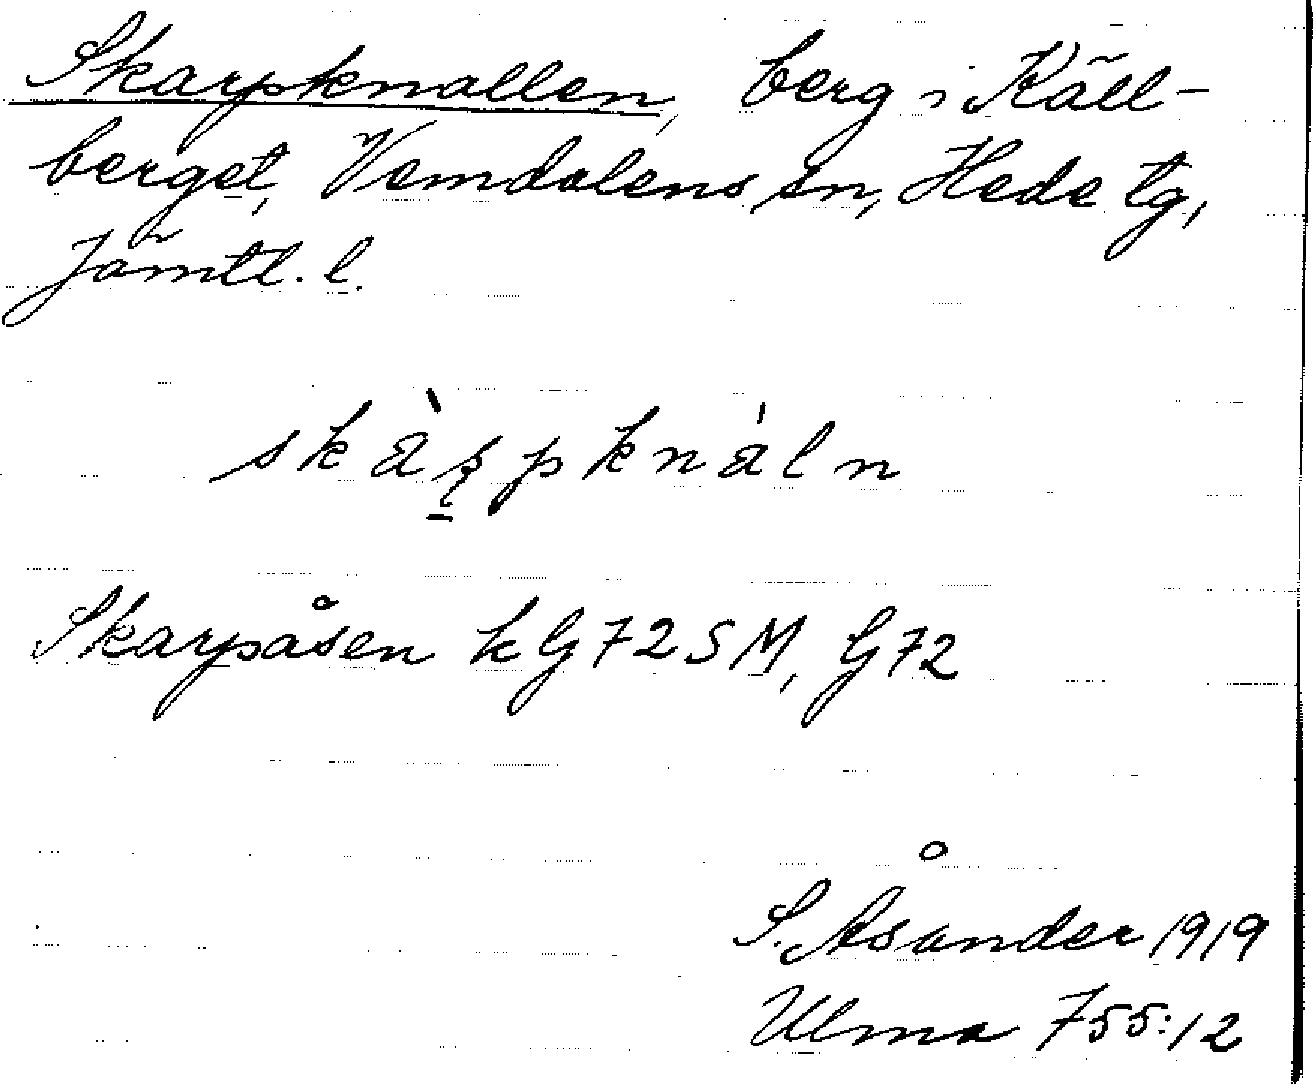 Skarpknallen, berg i Käll-
berget, Vemdalens sn, Hede tg,
Jämtl. l.
skàʂpknáln
Skarpåsen kG72SM, G72
S. Åsander 1919
Ulma 755:12